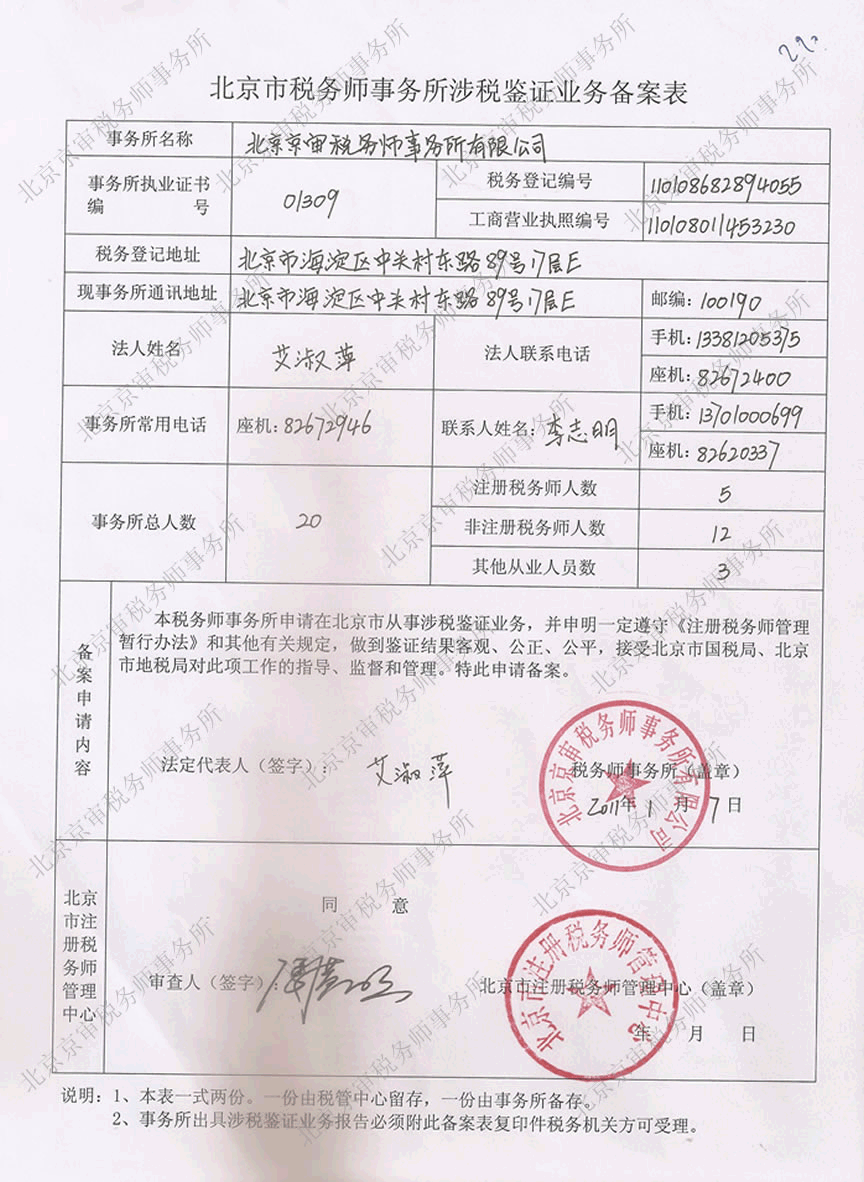 北京市税务师事务所涉税鉴证业务备案表
事务所名称 北京京审税务师事务所有限公司
事务所执业证书编号 01309
税务登记编号 110108682894055
工商营业执照编号 110108011453230
税务登记地址 北京市海淀区中关村东路89号17层E
现事务所通讯地址 北京市海淀区中关村东路89号17层E 邮编:100190
法人姓名 艾淑萍 法人联系电话 手机:13381205375
座机:82672400
事务所常用电话 座机:82672946 联系人姓名:李志明 手机:13701000699
座机:82620337
事务所总人数 20
注册税务师人数 5
非注册税务师人数 12
其他从业人员数 3
备案申请内容
本税务师事务所申请在北京市从事涉税鉴证业务，并申明一定遵守《注册税务师管理
暂行办法》和其他有关规定，做到鉴证结果客观、公正、公平，接受北京市国税局、北京
市地税局对此项工作的指导、监督和管理。特此申请备案。
法定代表人（签字）: 艾淑萍
税务师事务所（盖章）
2011年 1 月 7 日
北京京审税务师事务所有限公司
北京市注册税务师管理中心
同 意
审查人（签字）:
北京市注册税务师管理中心（盖章）
年 月 日
北京市注册税务师管理中心
说明: 1、本表一式两份。一份由税管中心留存，一份由事务所备存。
2、事务所出具涉税鉴证业务报告必须附此备案表复印件税务机关方可受理。
北京京审税务师事务所